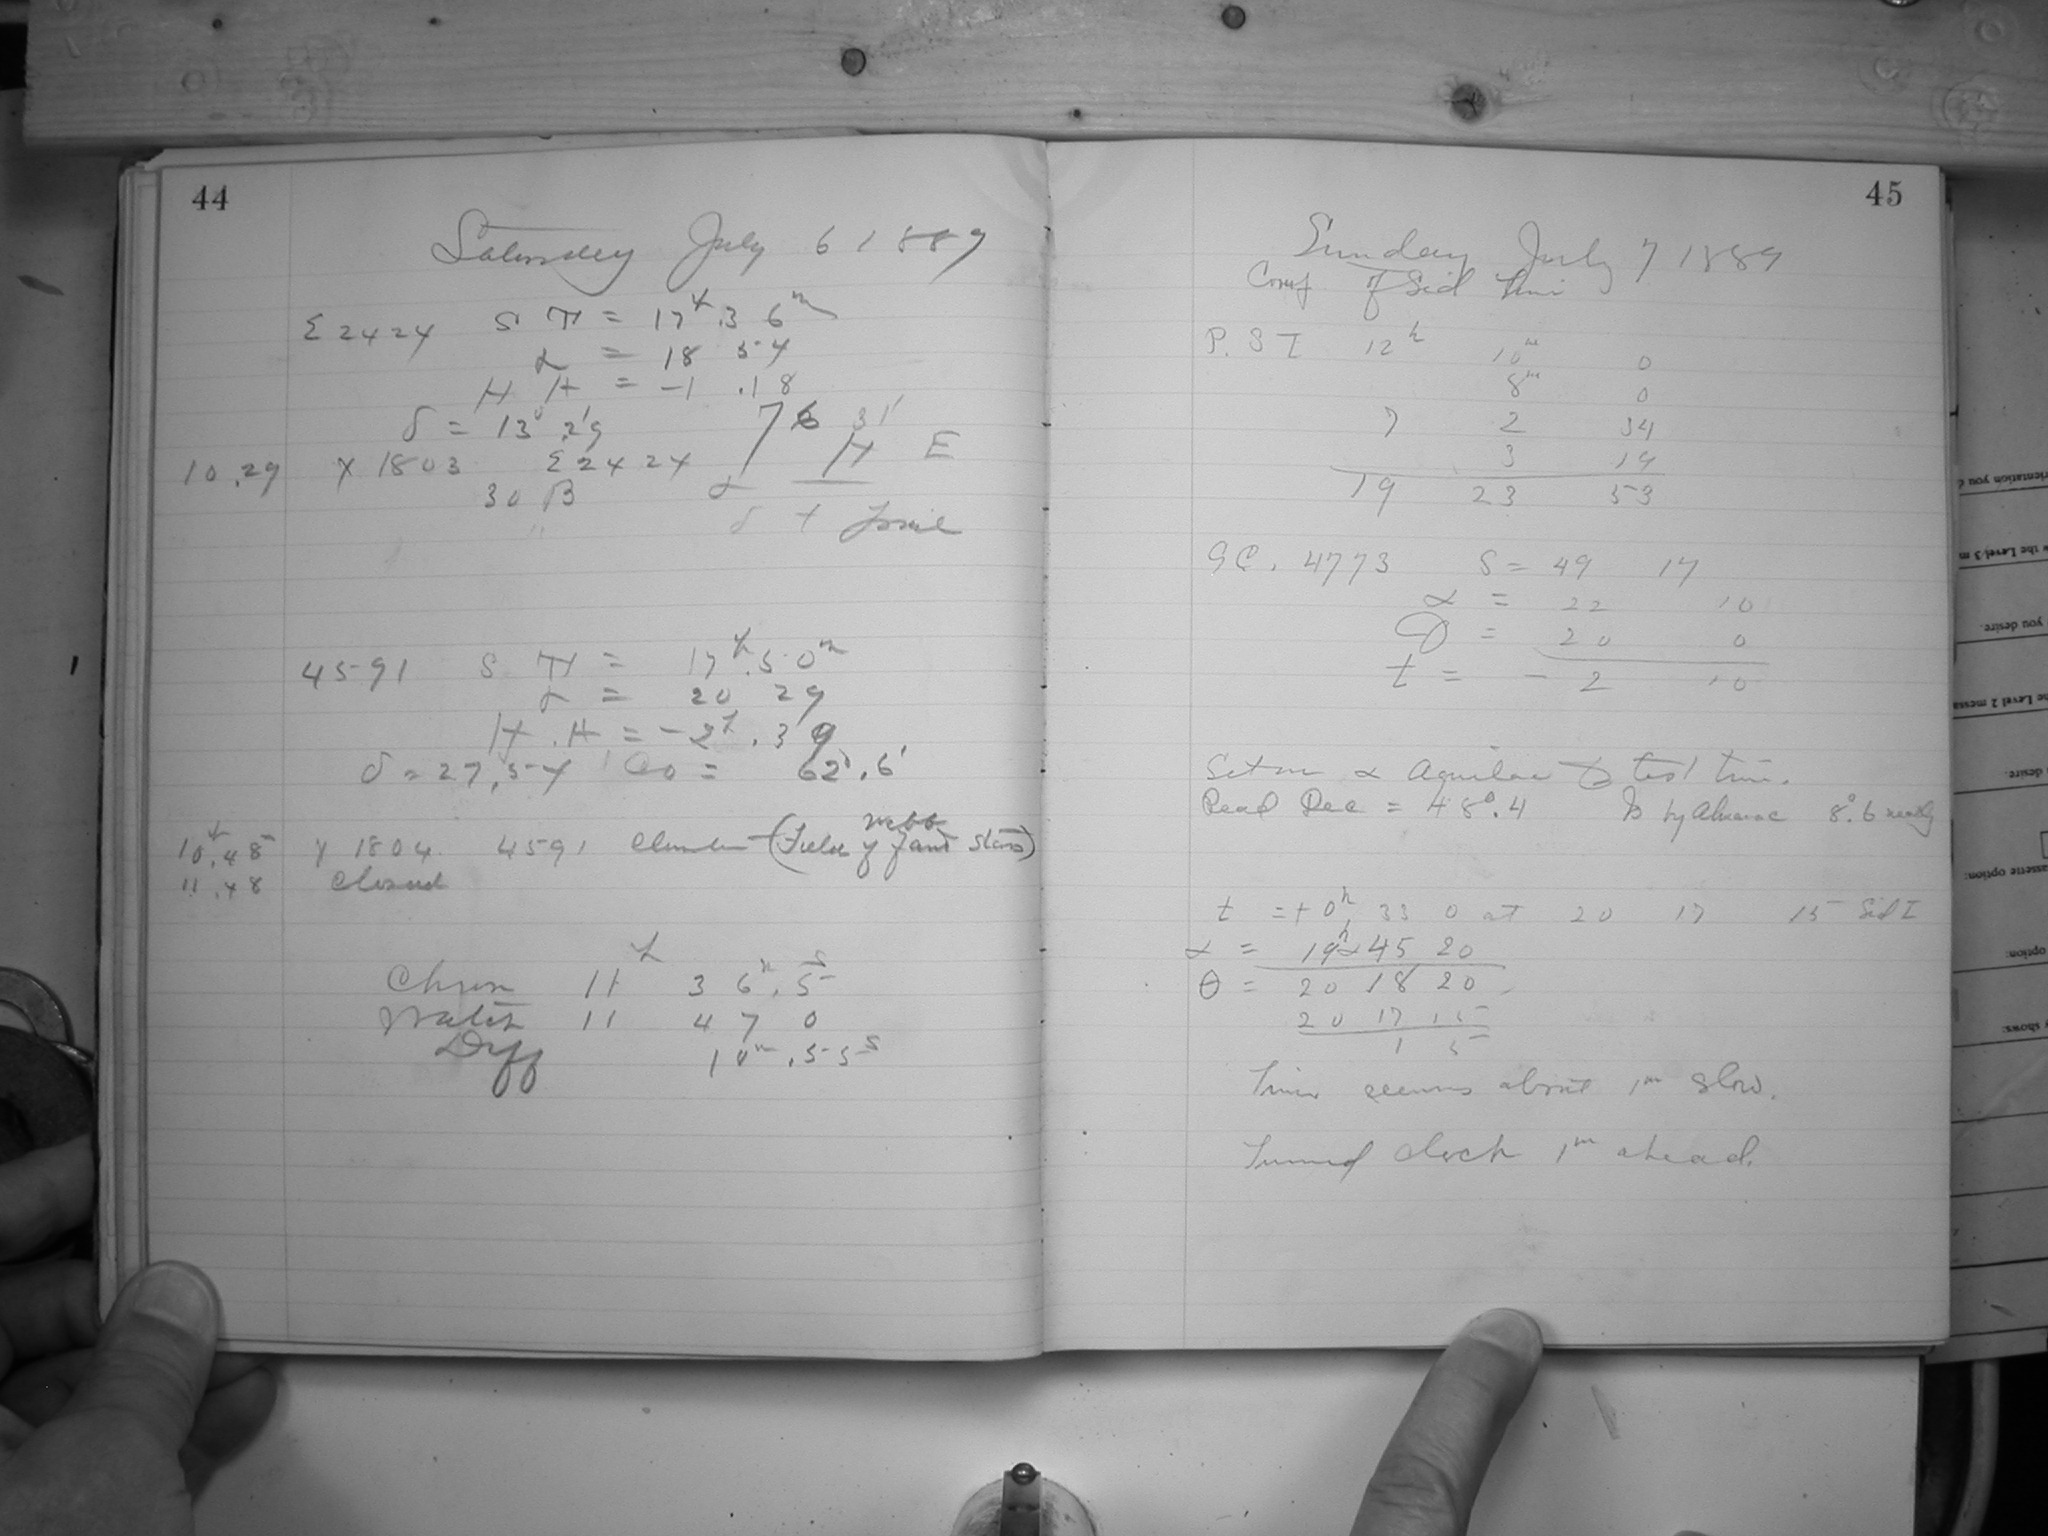 44
Saturday July 6 1889
Σ 2424 S T = 17h.36m
α = 18 54
H A = -1 .18
δ = 13° 29' 76 31'
10.29 X 1803 Σ 2424 H E
30 B α
δ +
4591 S T = 17h.50m
α = 20 29
H.A = -2h.39
δ = 27,54 = 62°.6'
10h.48 Y 1804. 4591 Cluster (Field of faint stars)
Webb
11.48 Closed
Chron 11h 36m.5s
Watch 11 47 0
Diff 10m.55s
45
Sunday July 7 1889
Comp of Sid Time
P. S T 12h 10m 0
8m 0
7 2 34
3 19
19 23 53
G C. 4773 δ = 49 17
α = 22 10
θ = 20 0
t = - 2 10
Set on α Aquilae to test time.
Read Dec = +8°.4 Is by Almanac 8°.6 nearly
t = + 0h 33 0 at 20 17 15 Sid T
α = 19h 45 20
θ = 20 18 20
20 17 15
1 5
Time seems about 1m slow.
Turned clock 1m ahead.